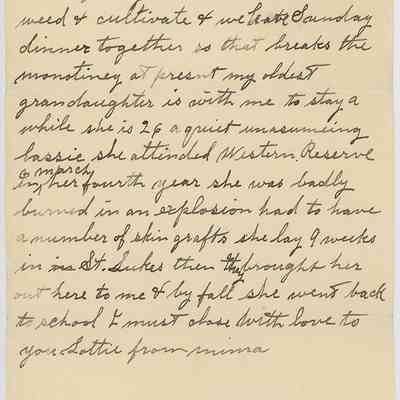 weed & cultivate & we have Sunday
dinner together so that breaks the
monotiney at present my oldest
grandaughter is with me to stay a
while she is 26 a quiet unasumeing
lassie she attended Western Reserve
6 march
in her fourth year she was badly
burned in an explosion had to have
a number of skin grafts she lay 9 weeks
in St. Lukes then they brought her
out here to me & by fall she went back
to school I must close with love to
you Lottie from mima